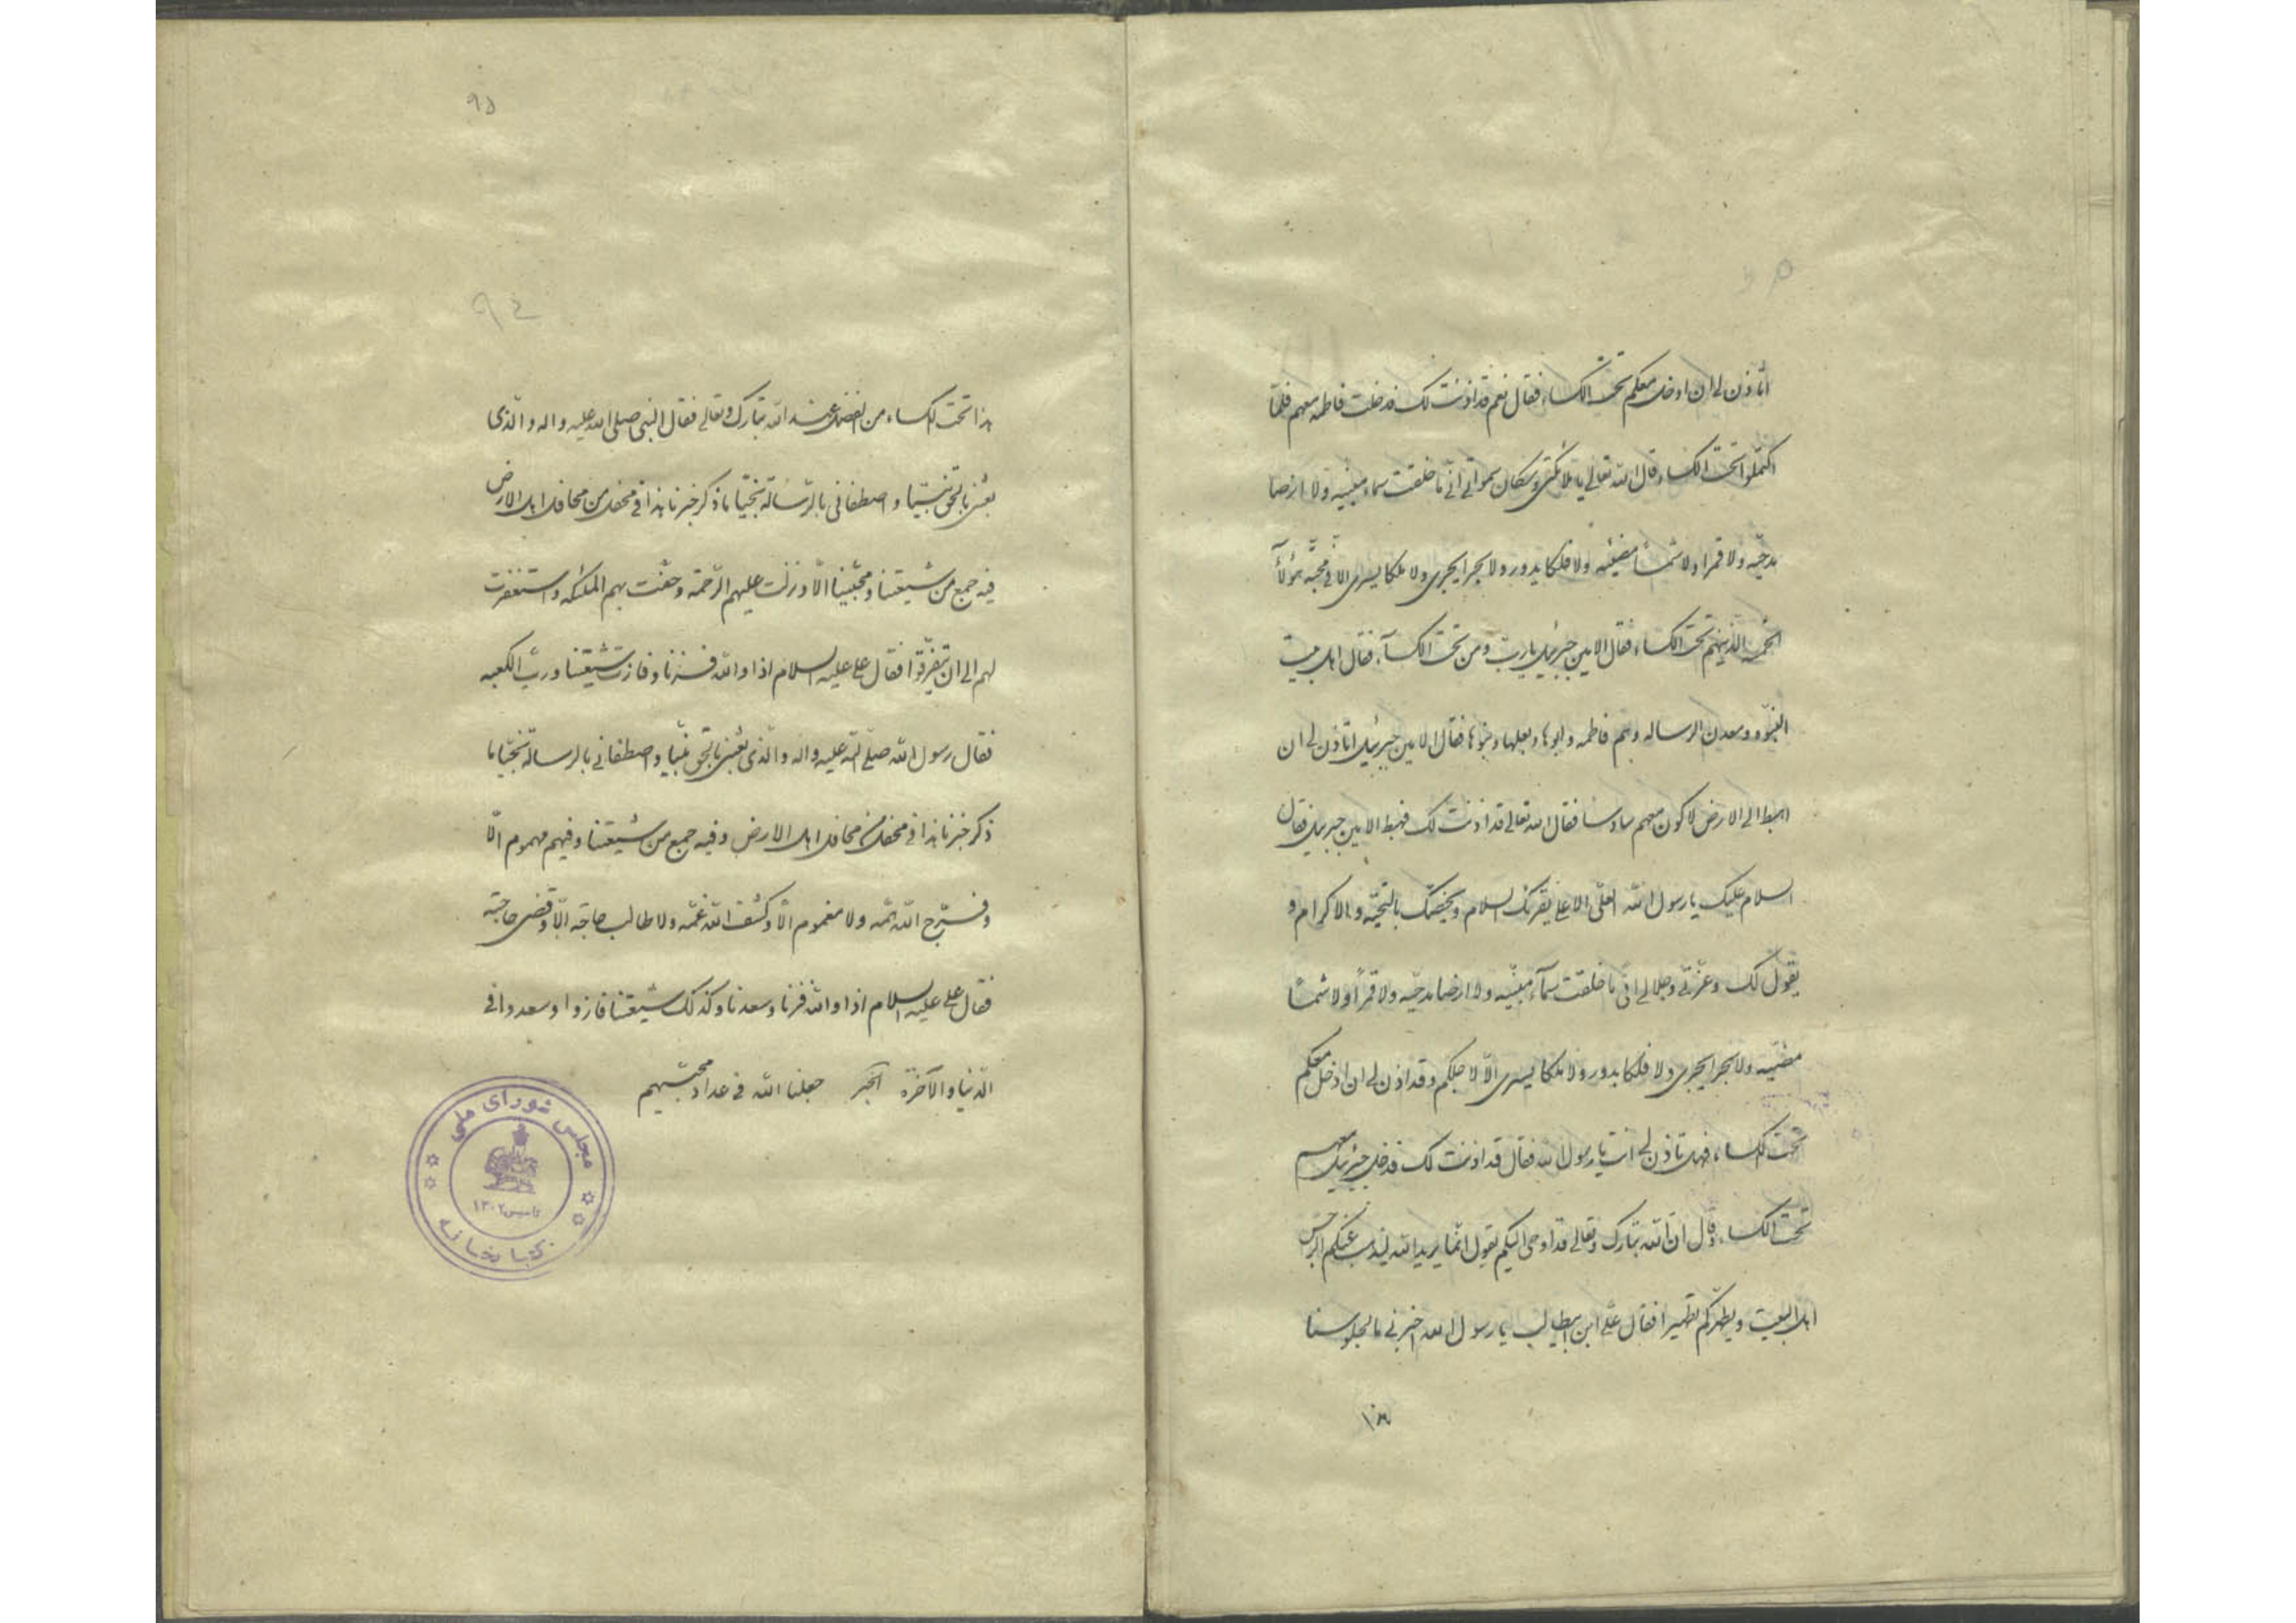 أتاذن لی ان ادخل معکم تحت الکساء فقال نعم قد اذنت لک فدخلت فاطمه معهم فلمّا
اکتملوا تحت الکساء قال الله تعالی یا ملائکتی و سکان سمواتی انّی ما خلقت سماء مبنیّه ولا ارضا
مدحیّه ولا قمرا ولا شمسا مضیئه ولا فلکا یدور ولا بحرا یجری ولا فلکا یسری الا فی محبّه هؤلآء
الخمسه الذینهم تحت الکساء فقال الامین جبرئیل یا ربّ و من تحت الکسآء فقال اهل بیت
النبوّه و معدن الرساله و هم فاطمه و ابوها و بعلها و بنوها فقال الامین جبرئیل أتاذن لی ان
اهبط الی الارض لاکون معهم سادسا فقال الله تعالی قد اذنت لک فهبط الامین جبرئیل فقال
السلام علیک یا رسول الله العلیّ الاعلی یقرئک السلام و یخصّک بالتحیّه و بالاکرام و
یقول لک و عزّتی و جلالی انّی ما خلقت سمآء مبنیّه ولا ارضا مدحیّه ولا قمراً ولا شمساً
مضیئه ولا بحرا یجری ولا فلکا یدور ولا فلکا یسری الّا لاجلکم و قد اذن لی ان ادخل معکم
تحت الکساء فهل تاذن لی انت یا رسول الله فقال قد اذنت لک فدخل جبرئیل معهم
تحت الکساء و قال انّ الله تبارک و تعالی قد اوحی الیکم یقول انّما یرید الله لیذهب عنکم الرجس
اهل البیت و یطهّرکم تطهیرا فقال علیّ ابن ابیطالب یا رسول الله اخبرنی ما لجلوسنا
هذا
۹۵
۹۴
هذا تحت الکساء من الفضل عند الله تبارک و تعالی فقال النبی صلی الله علیه و اله و الّذی
بعثنی بالحق نبیّا و اصطفانی بالرّسالة نجیّا ما ذکر خبرنا هذا فی محفل من محافل اهل الارض
فیه جمع من شیعتنا و محبّینا الّا و نزلت علیهم الرّحمة و حفّت بهم الملئکه و استغفرت
لهم الی ان یتفرّقوا فقال علی علیه السلام اذا و الله فزنا و فازت شیعتنا و ربّ الکعبه
فقال رسول الله صلّی الله علیه و اله و الّذی بعثنی بالحق نبیّا و اصطفانی بالرسالة نجیّا ما
ذکر خبرنا هذا فی محفل من محافل اهل الارض و فیه جمع من شیعتنا و فیهم مهموم الّا
و فرّج الله همّه ولا مغموم الّا و کشف الله غمّه ولا طالب حاجة الّا و قضی حاجته
فقال علی علیه السلام اذا و الله فزنا و سعدنا و کذلک شیعتنا فازوا و سعدوا فی
الدّنیا و الآخرة الخبر جعلنا الله فی عداد محبّیهم
مجلس شورای ملی
تاسیس ۱۳۰۲
کتابخانه